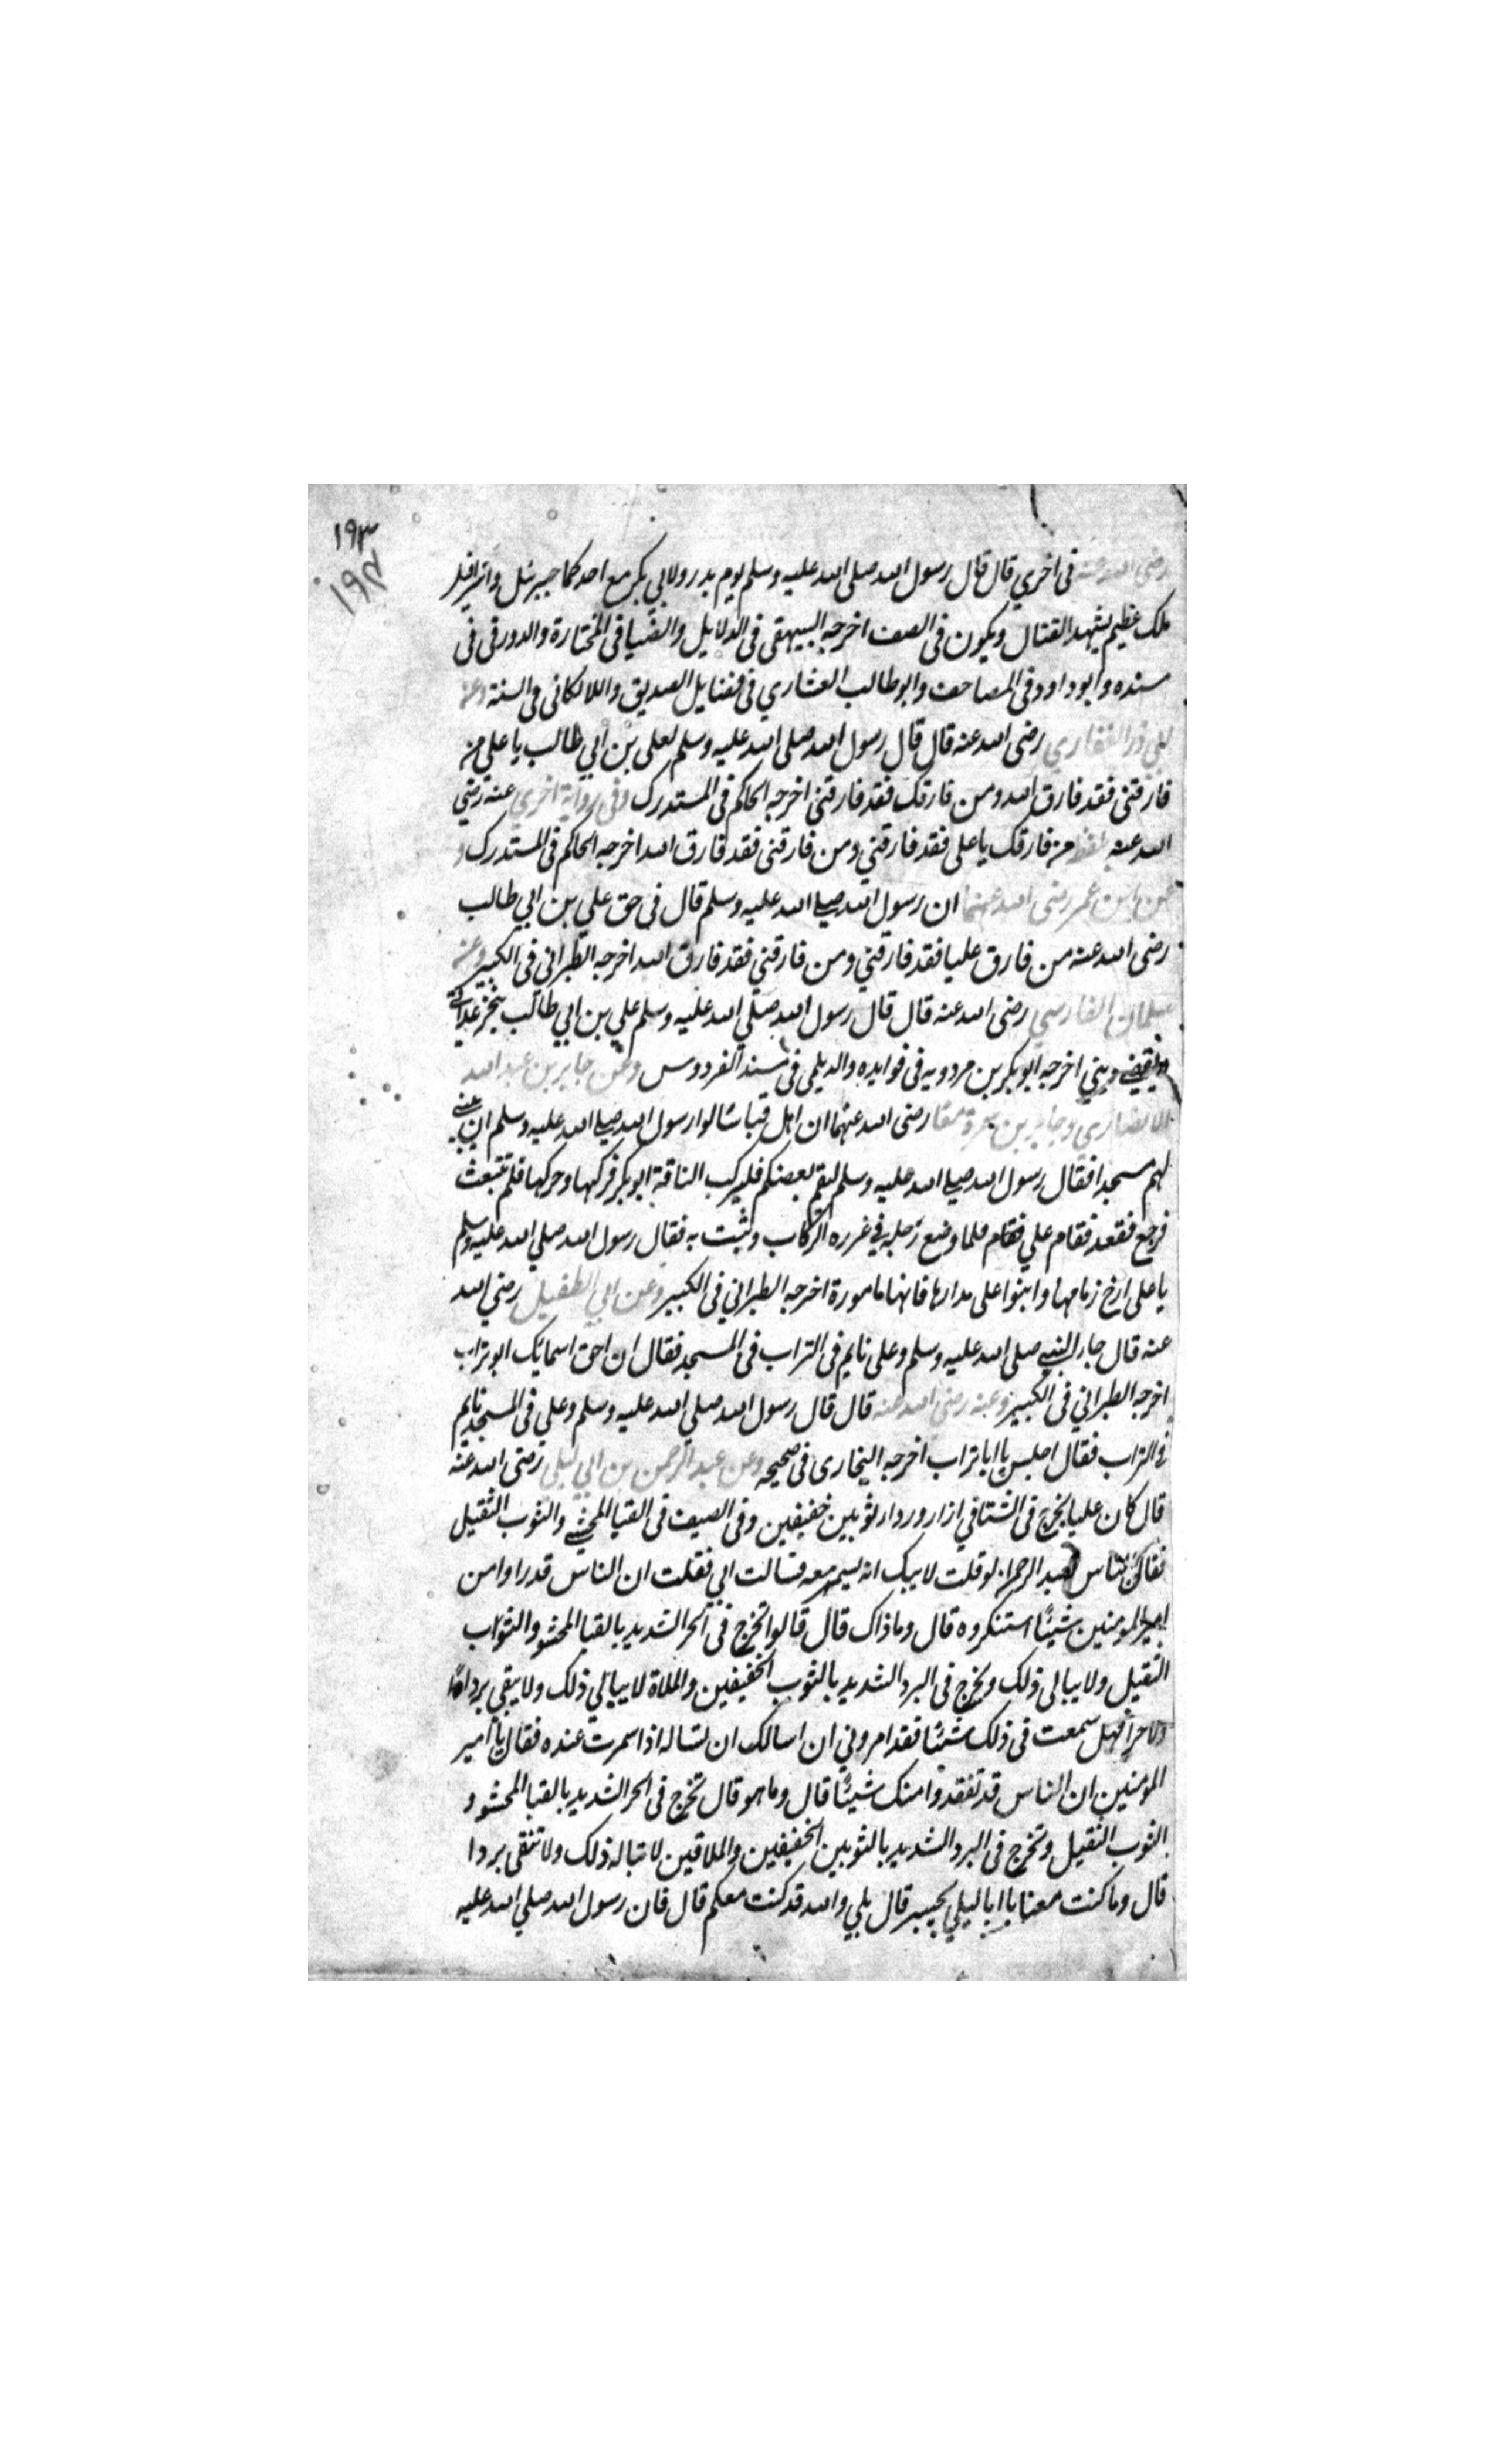 ١٩٣
١٩٢
رضى الله عنه فى اخري قال قال رسول الله صلى الله عليه وسلم يوم بدر ولابي بكر مع احدكما جبرئيل واسرافيل
ملك عظيم يشهد القتال ويكون فى الصف اخرجه البيهقى فى الدلايل والضيا فى المختارة والدورقى فى
مسنده وابو داود فى المصاحف وابو طالب العشاري فى فضايل الصديق واللالكانى فى السنة وعن
ابي ذر الغفاري رضى الله عنه قال قال رسول الله صلى الله عليه وسلم لعلى بن ابي طالب يا على من
فارقنى فقد فارق الله ومن فارقك فقد فارقنى اخرجه الحاكم فى المستدرك وفى رواية اخري عنه رضي
الله عنه بلفظ من فارقك يا على فقد فارقني ومن فارقنى فقد فارق الله اخرجه الحاكم فى المستدرك و
عن ابن عمر رضى الله عنهما ان رسول الله صلى الله عليه وسلم قال فى حق علي بن ابي طالب
رضى الله عنه من فارق عليا فقد فارقني ومن فارقني فقد فارق الله اخرجه الطبراني فى الكبير وعن
سلمان الفارسي رضى الله عنه قال قال رسول الله صلي الله عليه وسلم علي بن ابي طالب ينجز عداتي
ويقضي ديني اخرجه ابو بكر بن مردويه فى فوايده والديلمى فى مسند الفردوس وعن جابر بن عبد الله
الانصاري وجابر بن سمرة معا رضى الله عنهما ان اهل قبا سالوا رسول الله صلى الله عليه وسلم ان يبني
لهم مسجدا فقال رسول الله صلى الله عليه وسلم ليقم بعضكم فليركب الناقة ابو بكر فركبها وحركها فلم تنبعث
فرجع فقعد فقام علي فقام فلما وضع رجله في غرره الركاب وثبت به فقال رسول الله صلي الله عليه وسلم
يا على ارخ زمامها وابنوا على مدارها فانها مامورة اخرجه الطبراني فى الكبير وعن ابي الطفيل رضي الله
عنه قال جاء النبي صلى الله عليه وسلم وعلى نايم فى التراب فى المسجد فقال ان احق اسمائك ابو تراب
اخرجه الطبراني فى الكبير وعنه رضى الله عنه قال قال رسول الله صلي الله عليه وسلم وعلي فى المسجد نايم
فى التراب فقال اجلس يا ابا تراب اخرجه البخارى فى صحيحه وعن عبد الرحمن بن ابي ليلى رضى الله عنه
قال كان عليا يخرج فى الشتا في ازار وردار ثوبين خفيفين وفى الصيف فى القبا المحشي والثوب الثقيل
فقال الناس لعبد الرحمن لو قلت لابيك انه يسمر معه فسالت ابي فقلت ان الناس قد راوا من
امير المومنين شيئا استنكروه قال وما ذاك قال قالوا تخرج فى الحر الشديد بالقبا المحشو والثواب
الثقيل ولا يبالى ذلك ويخرج فى البرد الشديد بالثوب الخفيفين والملاة لا يبالي ذلك ولا يبقي بردا
ولا حرا فهل سمعت فى ذلك شيئا فقد امروني ان اسالك ان تساله اذا سمرت عنده فقال يا امير
المومنين ان الناس قد تفقدوا منك شيئا قال وما هو قال تخرج فى الحر الشديد بالقبا المحشو و
الثوب الثقيل وتخرج فى البرد الشديد بالثوبين الخفيفين والملاقين لا تباله ذلك ولا تتقى بردا
قال وما كنت معنا يا ابا ليلي بخيبر قال بلي والله قد كنت معكم قال فان رسول الله صلي الله عليه